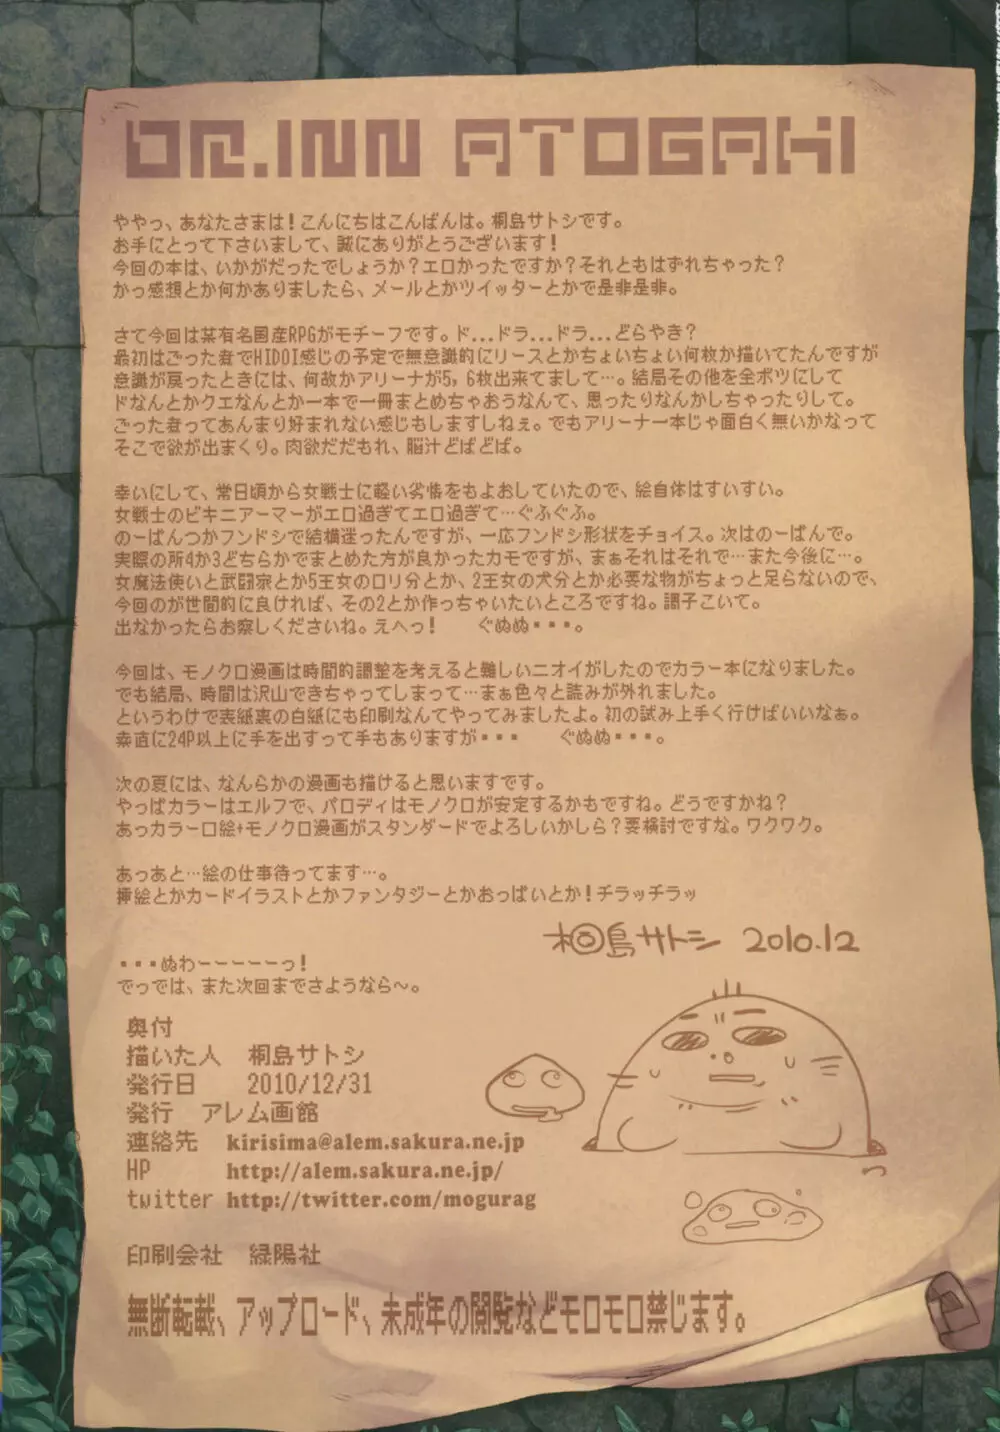 DR.INN ATOGAKI
ややっ、あなたさまは！こんにちはこんばんは。桐島サトシです。
お手にとって下さいまして、誠にありがとうございます！
今回の本は、いかがだったでしょうか？エロかったですか？それともはずれちゃった？
かっ感想とか何かありましたら、メールとかツイッターとかで是非是非。
さて今回は某有名国産RPGがモチーフです。ド...ドラ...ドラ...どらやき？
最初はごった煮でHIDOI感じの予定で無意識的にリースとかちょいちょい何枚か描いてたんですが
意識が戻ったときには、何故かアリーナが5，6枚出来てまして…。結局その他を全ボツにして
ドなんとかクエなんとか一本で一冊まとめちゃおうなんて、思ったりなんかしちゃったりして。
ごった煮ってあんまり好まれない感じもしますしねぇ。でもアリーナ一本じゃ面白く無いかなって
そこで欲が出まくり。肉欲だだもれ、脳汁どばどば。
幸いにして、常日頃から女戦士に軽い劣情をもよおしていたので、絵自体はすいすい。
女戦士のビキニアーマーがエロ過ぎてエロ過ぎて…ぐふぐふ。
のーぱんつかフンドシで結構迷ったんですが、一応フンドシ形状をチョイス。次はのーぱんで。
実際の所4か3どちらかでまとめた方が良かったカモですが、まぁそれはそれで…また今後に…。
女魔法使いと武闘家とか5王女のロリ分とか、2王女の犬分とか必要な物がちょっと足らないので、
今回のが世間的に良ければ、その2とか作っちゃいたいところですね。調子こいて。
出なかったらお察しくださいね。えへっ！　　ぐぬぬ・・・。
今回は、モノクロ漫画は時間的調整を考えると難しいニオイがしたのでカラー本になりました。
でも結局、時間は沢山できちゃってしまって…まぁ色々と読みが外れました。
というわけで表紙裏の白紙にも印刷なんてやってみましたよ。初の試み上手く行けばいいなぁ。
素直に24P以上に手を出すって手もありますが・・・　　ぐぬぬ・・・。
次の夏には、なんらかの漫画も描けると思いますです。
やっぱカラーはエルフで、パロディはモノクロが安定するかもですね。どうですかね？
あっカラー口絵+モノクロ漫画がスタンダードでよろしいかしら？要検討ですな。ワクワク。
あっあと…絵の仕事待ってます…。
挿絵とかカードイラストとかファンタジーとかおっぱいとか！チラッチラッ
桐島サトシ 2010.12
・・・ぬわーーーーーっ！
でっでは、また次回までさようなら〜。
奥付
描いた人　桐島サトシ
発行日　2010/12/31
発行　アレム画館
連絡先　kirisima@alem.sakura.ne.jp
HP　http://alem.sakura.ne.jp/
twitter　http://twitter.com/mogurag
印刷会社　緑陽社
無断転載、アップロード、未成年の閲覧などモロモロ禁じます。